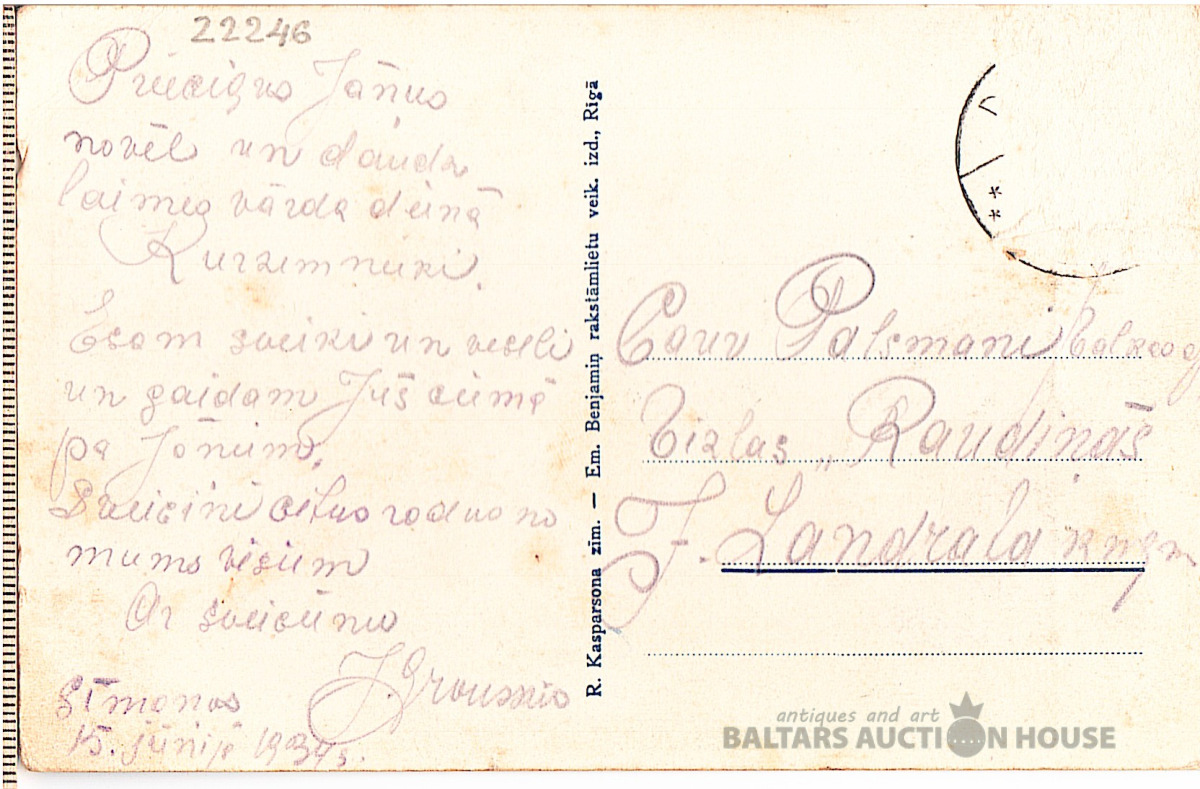 22246
Priecīgus Jāņus
novēl un daudz
laimes vārda dienā
Kurzemnieki.
Esam sveiki un veseli
un gaidam Jūs ciemā
pa Jāņiem.
Sveicini citus radus no
mums visiem
Ar sveicienu
15. jūnijā
R. Kasparsona zīm. — Em. Benjamiņ rakstāmlietu veik. izd., Rīgā
Caur Palsmani
"Raudiņās
J. Landrata kngm
antiques and art
BALTARS AUCTION HOUSE